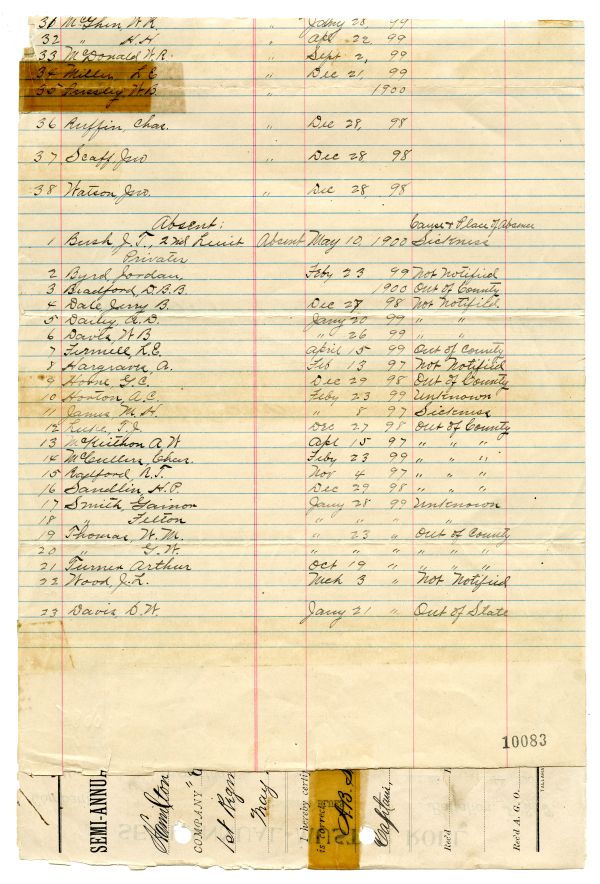 31 McGhin, W.R. " Jany 28, 99
32 " H.H. " Apr 22, 99
33 McDonald W.R. " Sept 2, 99
34 Miller L E " Dec 21, 99
35 Pursley W B " 1900
36 Ruffin, Chas. " Dec 28, 98
37 Scaff, Jno " Dec 28 98
38 Watson, Jno. " Dec 28, 98
Absent: Cause & Place of Absence
1 Bush J. T., 2nd Lieut Absent May 10, 1900 Sickness
Privates
2 Byrd Jordan, Feby 23 99 Not notified
3 Bradford, D.B.B 1900 Out of County
4 Dale, Jerry B. Dec 27 98 Not Notified
5 Dailey, A. D. Jany 20 99 " "
6 Davis, W B " 26 99 " "
7 L.E. April 15 99 Out of County
8 Hargraves, A. Feb 13 97 Not Notified
9 G.C. Dec 29 98 Out of County
10 Horton, A.C. Feby 23 99 Unknown
11 James M. H. " 8 97 Sickness
12 T.J. Dec 27 98 Out of County
13 McKeithon A, W Apr 15 97 " " "
14 McCullers, Chas. Feby 23 99 " " "
15 Radford, R.T. Nov 4 97 " " "
16 Sandlin, H.P. Dec 29 98 " " "
17 Smith Gainor Jany 28 99 Unknown
18 " Felton " " " "
19 Thomas, W. M. " 23 " Out of County
20 " G.W. " " " " " "
21 Turner Arthur Oct 19 " " " "
22 Wood J. L. Mch 3 " Not Notified
23 Davis, D. W. Jany 21 " Out of State
10083
SEMI-ANNU
Hamilton
COMPANY "
1st Regm
May
I hereby certi
is correct
Captain,
Rec'd
Rec'd A. G. O.